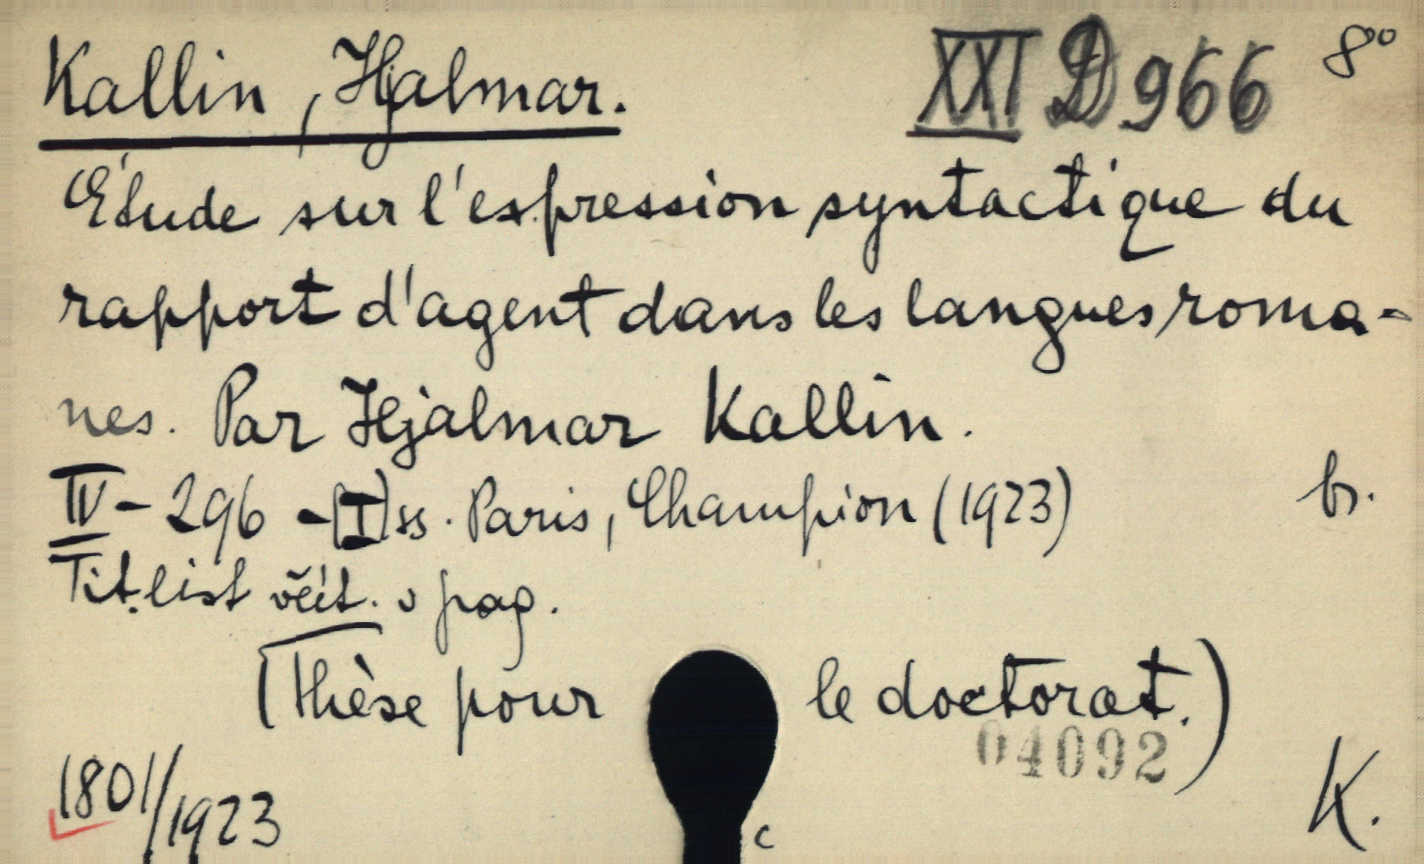 Kallin, Hjalmar.
XXI D 966 8°
Étude sur l'expression syntactique du
rapport d'agent dans les langues roma-
nes. Par Hjalmar Kallin.
IV - 296 - [I] ss. Paris, Champion (1923) br.
Tit. list včít. v pag.
(Thèse pour le doctorat.)
04092
1801/1923
c
K.